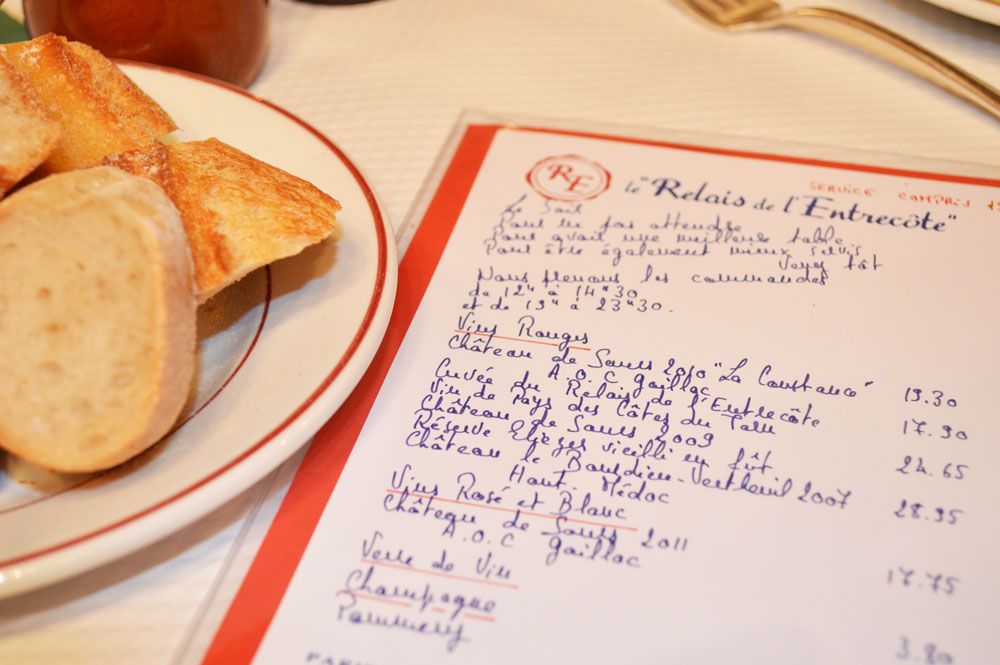 RE
SERVICE COMPRIS 15
le "Relais de l'Entrecôte"
Le Soir
Pour ne pas attendre
Pour avoir une meilleure table
Pour être également mieux servis
Venez tôt
Nous prenons les commandes
de 12H à 14H30.
et de 19H à 23H30.
Vins Rouges
Château de Saurs 2010 "La Constance" 19.30
A.O.C Gaillac
Cuvée du Relais de l'Entrecôte 17.90
Vin de Pays des Côtes du Tarn
Château de Saurs 2009 24.65
Réserve Eliezer vieilli en fût
Château le Bourdieu-Vertheuil 2007 28.95
Haut-Médoc
Vins Rosé et Blanc
Château de Saurs 2011 17.75
A.O.C Gaillac
Verre de Vin 3.80
Champagne
Pommery